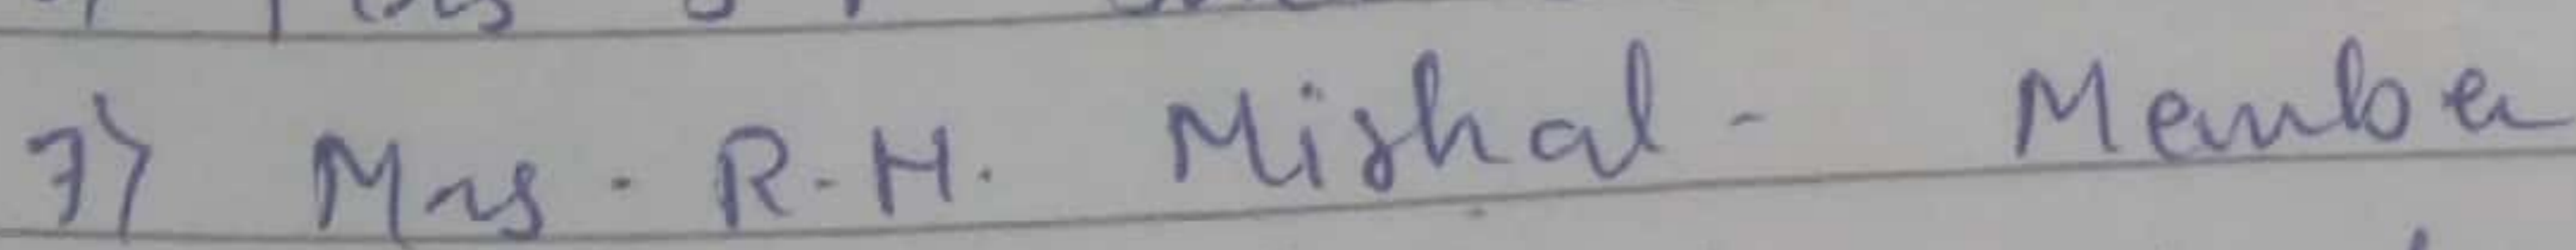 7) Mrs. R.H. Mishal - Member